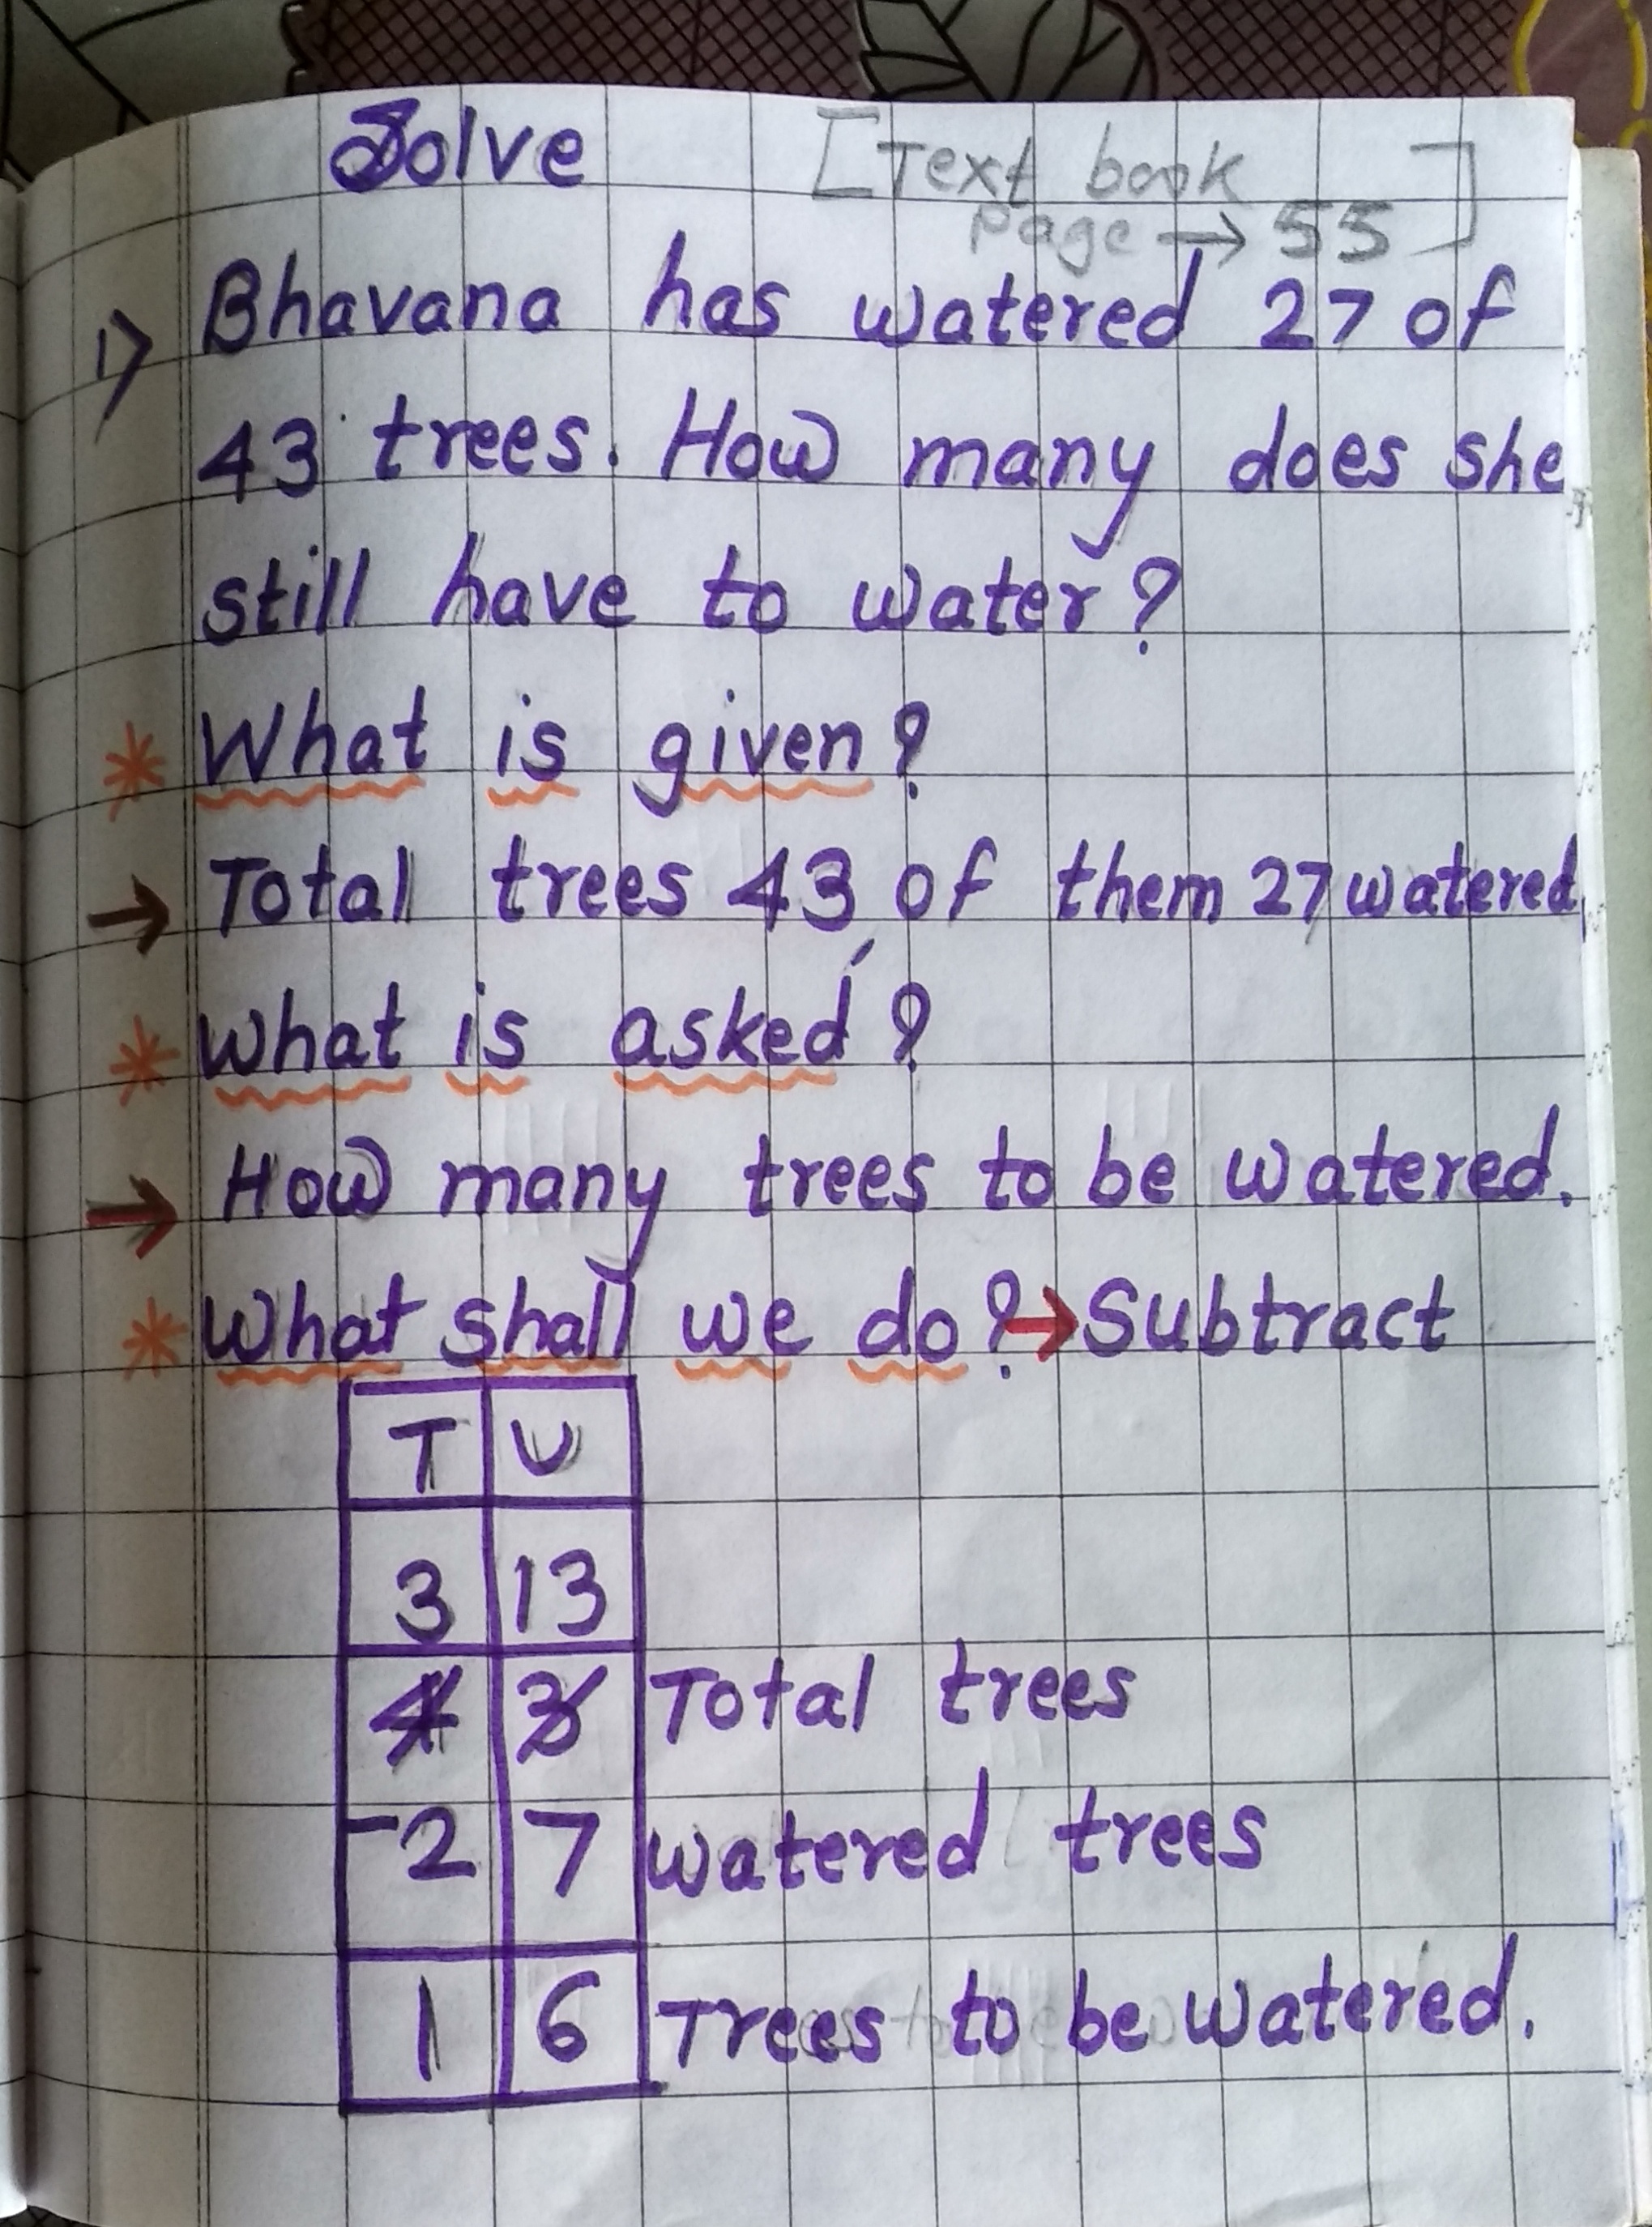 Solve [Text book
Page → 55]
1) Bhavana has watered 27 of
43 trees. How many does she
still have to water?
* What is given?
→ Total trees 43, of them 27 watered.
* What is asked?
→ How many trees to be watered.
* What shall we do? → Subtract
T U
3 13
4 3 Total trees
-2 7 watered trees
1 6 Trees to be watered.